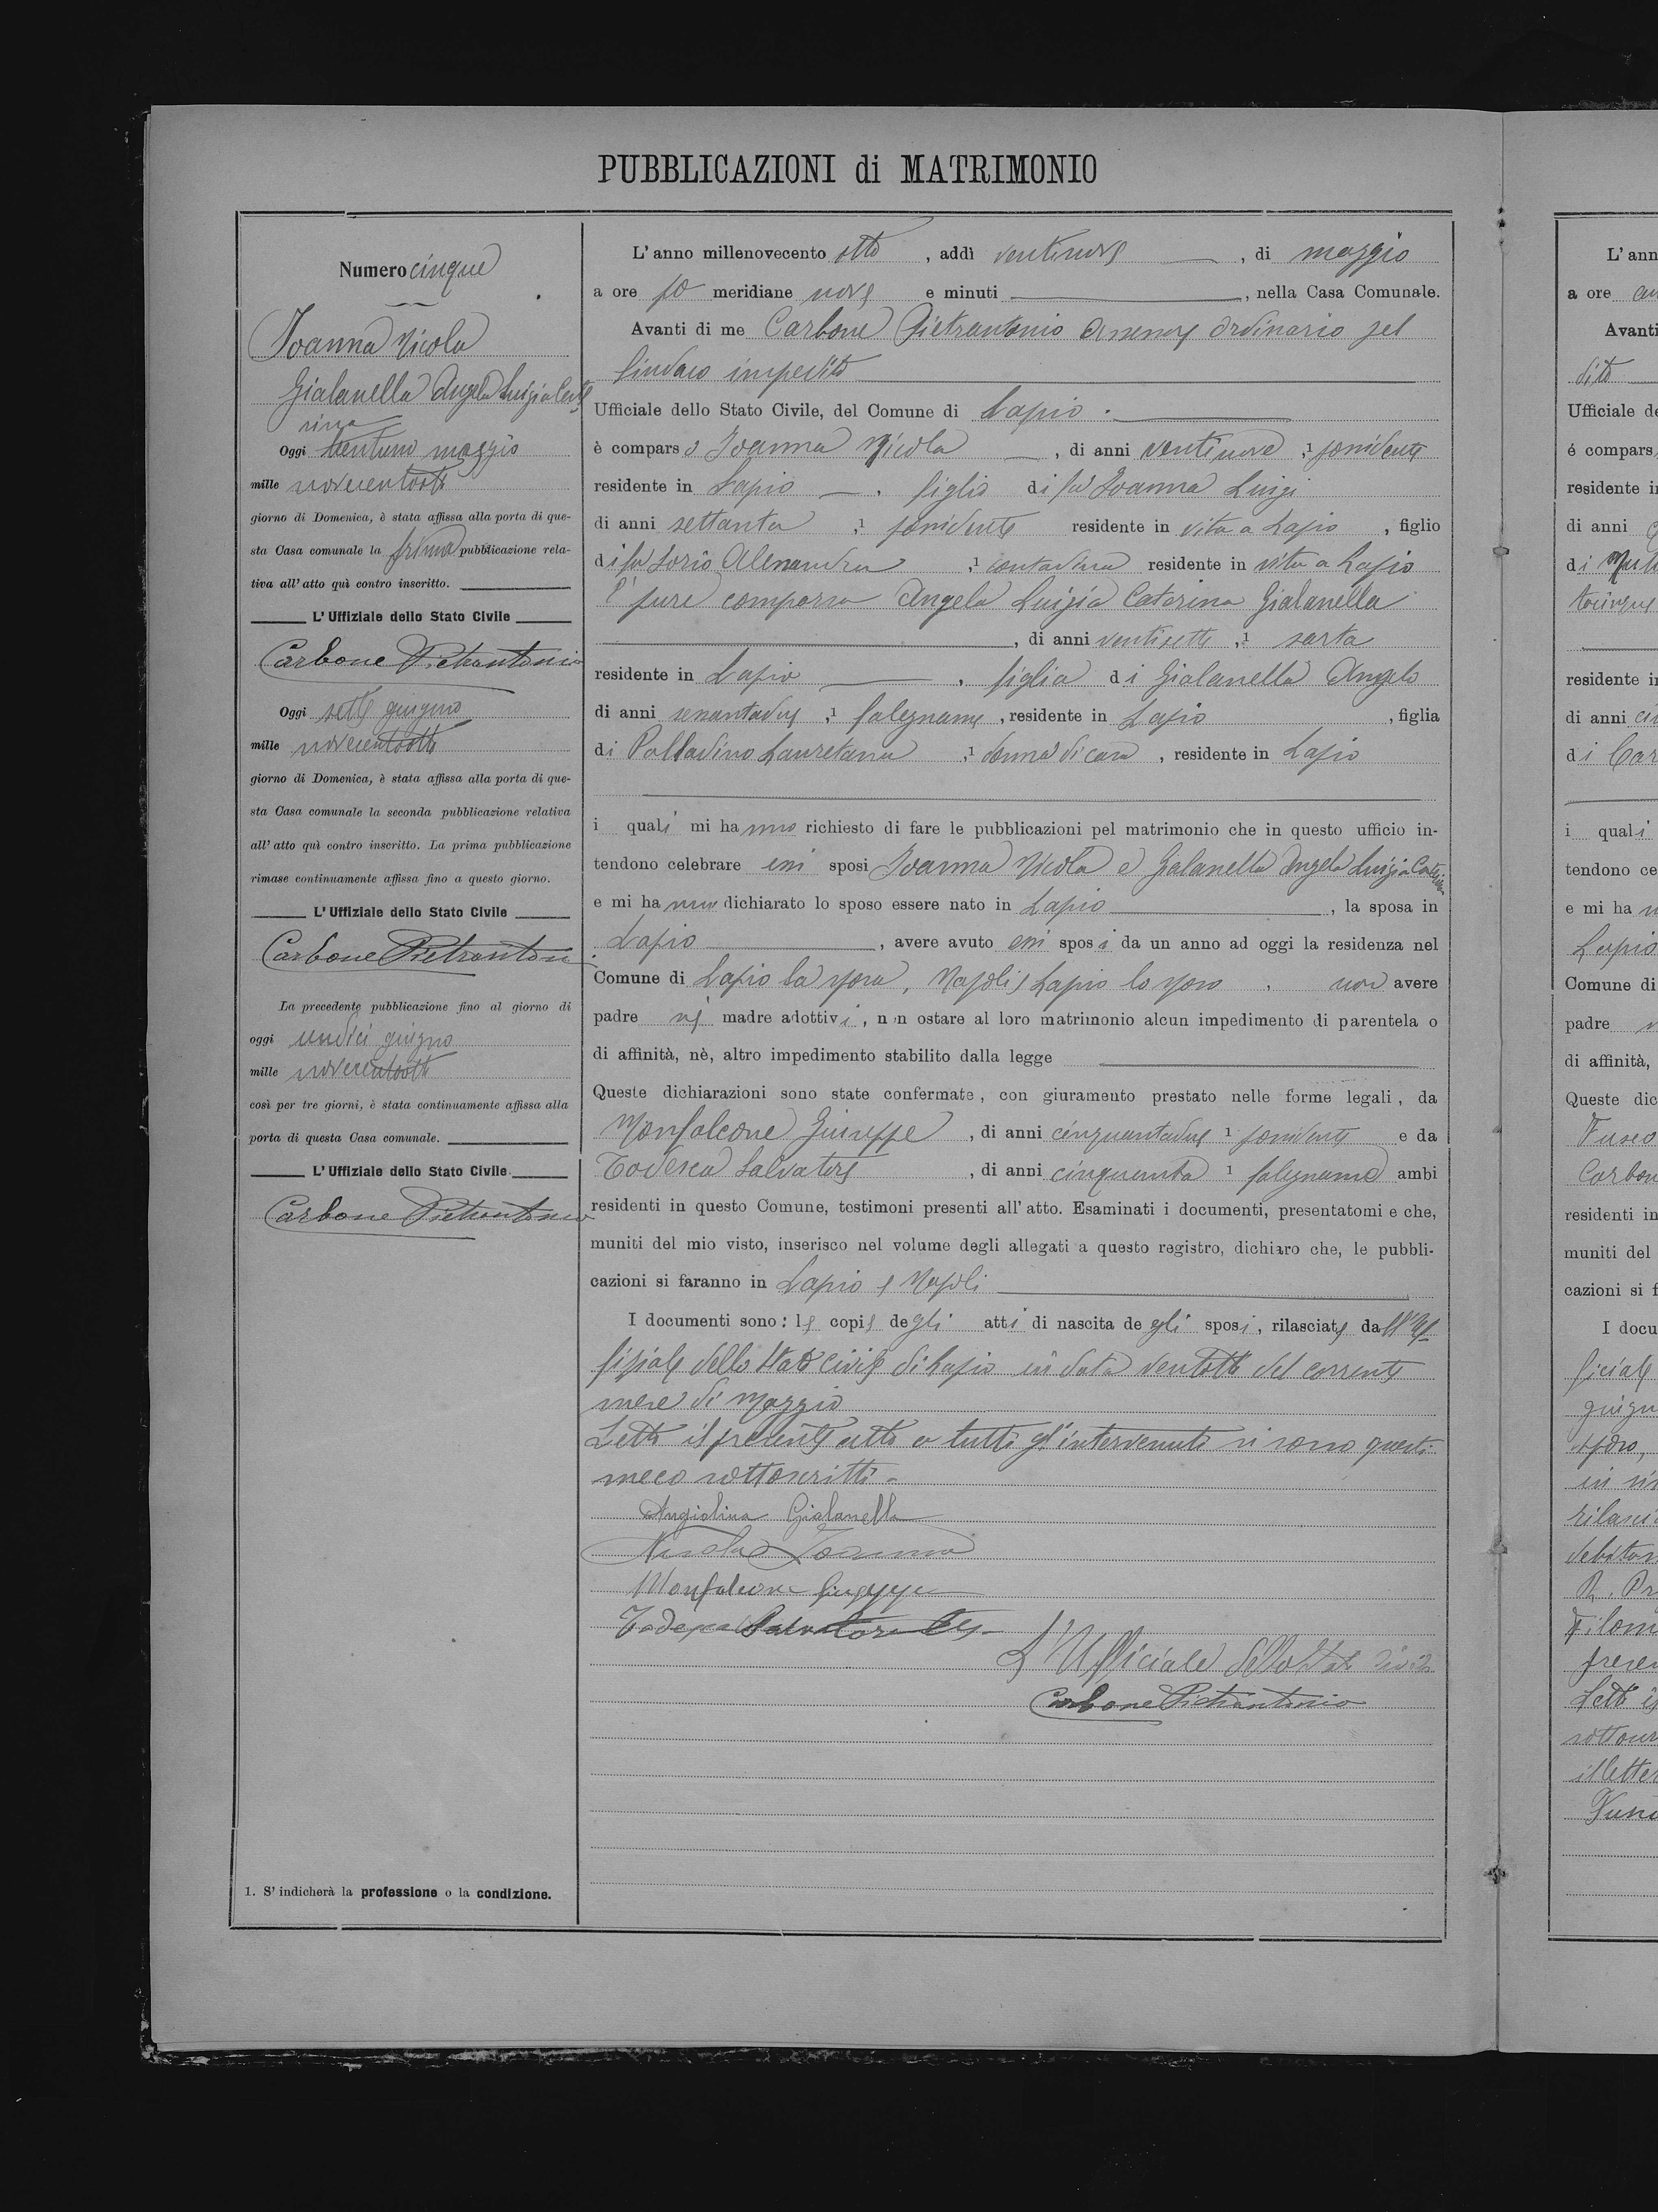 PUBBLICAZIONI di MATRIMONIO
Numero cinque
Ioanna Nicola
Gialanella Angela Luigia Cate
rina
Oggi trentuno maggio
mille novecentootto
giorno di Domenica, è stata affissa alla porta di que-
sta Casa comunale la prima pubblicazione rela-
tiva all' atto quì contro inscritto.
L' Uffiziale dello Stato Civile
Carbone Pietrantonio
Oggi sette giugno
mille novecentootto
giorno di Domenica, è stata affissa alla porta di que-
sta Casa comunale la seconda pubblicazione relativa
all' atto quì contro inscritto. La prima pubblicazione
rimase continuamente affissa fino a questo giorno.
L' Uffiziale dello Stato Civile
Carbone Pietranton
La precedente pubblicazione fino al giorno di
oggi undici giugno
mille novecentootto
così per tre giorni, è stata continuamente affissa alla
porta di questa Casa comunale.
L' Uffiziale dello Stato Civile
Carbone Pietrantonio
1. S' indicherà la professione o la condizione.
L' anno millenovecento otto , addì ventinove , di maggio
a ore po meridiane nove e minuti , nella Casa Comunale.
Avanti di me Carbone Pietrantonio Assessore ordinario pel
Sindaco impedito
Ufficiale dello Stato Civile, del Comune di Lapio .
è comparso Ioanna Nicola , di anni ventinove ,1 possidente
residente in Lapio . figlio di fu Ioanna Luigi
di anni settanta ,1 possidente residente in vita a Lapio , figlio
di fu Iorio Alessandra ,1 contadina residente in vita a Lapio
È pure comparsa Angela Luigia Caterina Gialanella
, di anni ventisette ,1 sarta
residente in Lapio , figlia di Gialanella Angelo
di anni sessantadue ,1 falegname , residente in Lapio , figlia
di Palladino Lauretana ,1 donna di casa , residente in Lapio
i quali mi hanno richiesto di fare le pubblicazioni pel matrimonio che in questo ufficio in-
tendono celebrare essi sposi Ioanna Nicola e Gialanella Angela Luigia Caterina
e mi hanno dichiarato lo sposo essere nato in Lapio , la sposa in
Lapio , avere avuto essi sposi da un anno ad oggi la residenza nel
Comune di Lapio la sposa, Napoli e Lapio lo sposo . non avere
padre nè madre adottivi, non ostare al loro matrimonio alcun impedimento di parentela o
di affinità, nè, altro impedimento stabilito dalla legge
Queste dichiarazioni sono state confermate, con giuramento prestato nelle forme legali, da
Monfalcone Giuseppe , di anni cinquantadue 1 possidente e da
Todesca Salvatore , di anni cinquanta 1 falegname ambi
residenti in questo Comune, testimoni presenti all' atto. Esaminati i documenti, presentatomi e che,
muniti del mio visto, inserisco nel volume degli allegati a questo registro, dichiaro che, le pubbli-
cazioni si faranno in Lapio e Napoli
I documenti sono: le copie degli atti di nascita degli sposi, rilasciate dall'Uf-
fiziale dello Stato civile di Lapio in data ventotto del corrente
mese di Maggio
Letto il presente atto a tutti gl'intervenuti si sono questi
meco sottoscritti -
Angiolina Gialanella
Nicola Ioanna
Monfalcone Giuseppe
Todesca Salvatore
L'Ufficiale dello Stato Civile
Carbone Pietrantonio
L' ann
a ore
Avanti
dito
Ufficiale de
é compars
residente in
di anni
di
residente in
di anni
di Car
i quali
tendono ce
e mi ha
Lapio
Comune di
padre
di affinità,
Queste dic
Fusco
Carbon
residenti in
muniti del
cazioni si f
I docu
ficiale
giugn
sposo,
rilasci